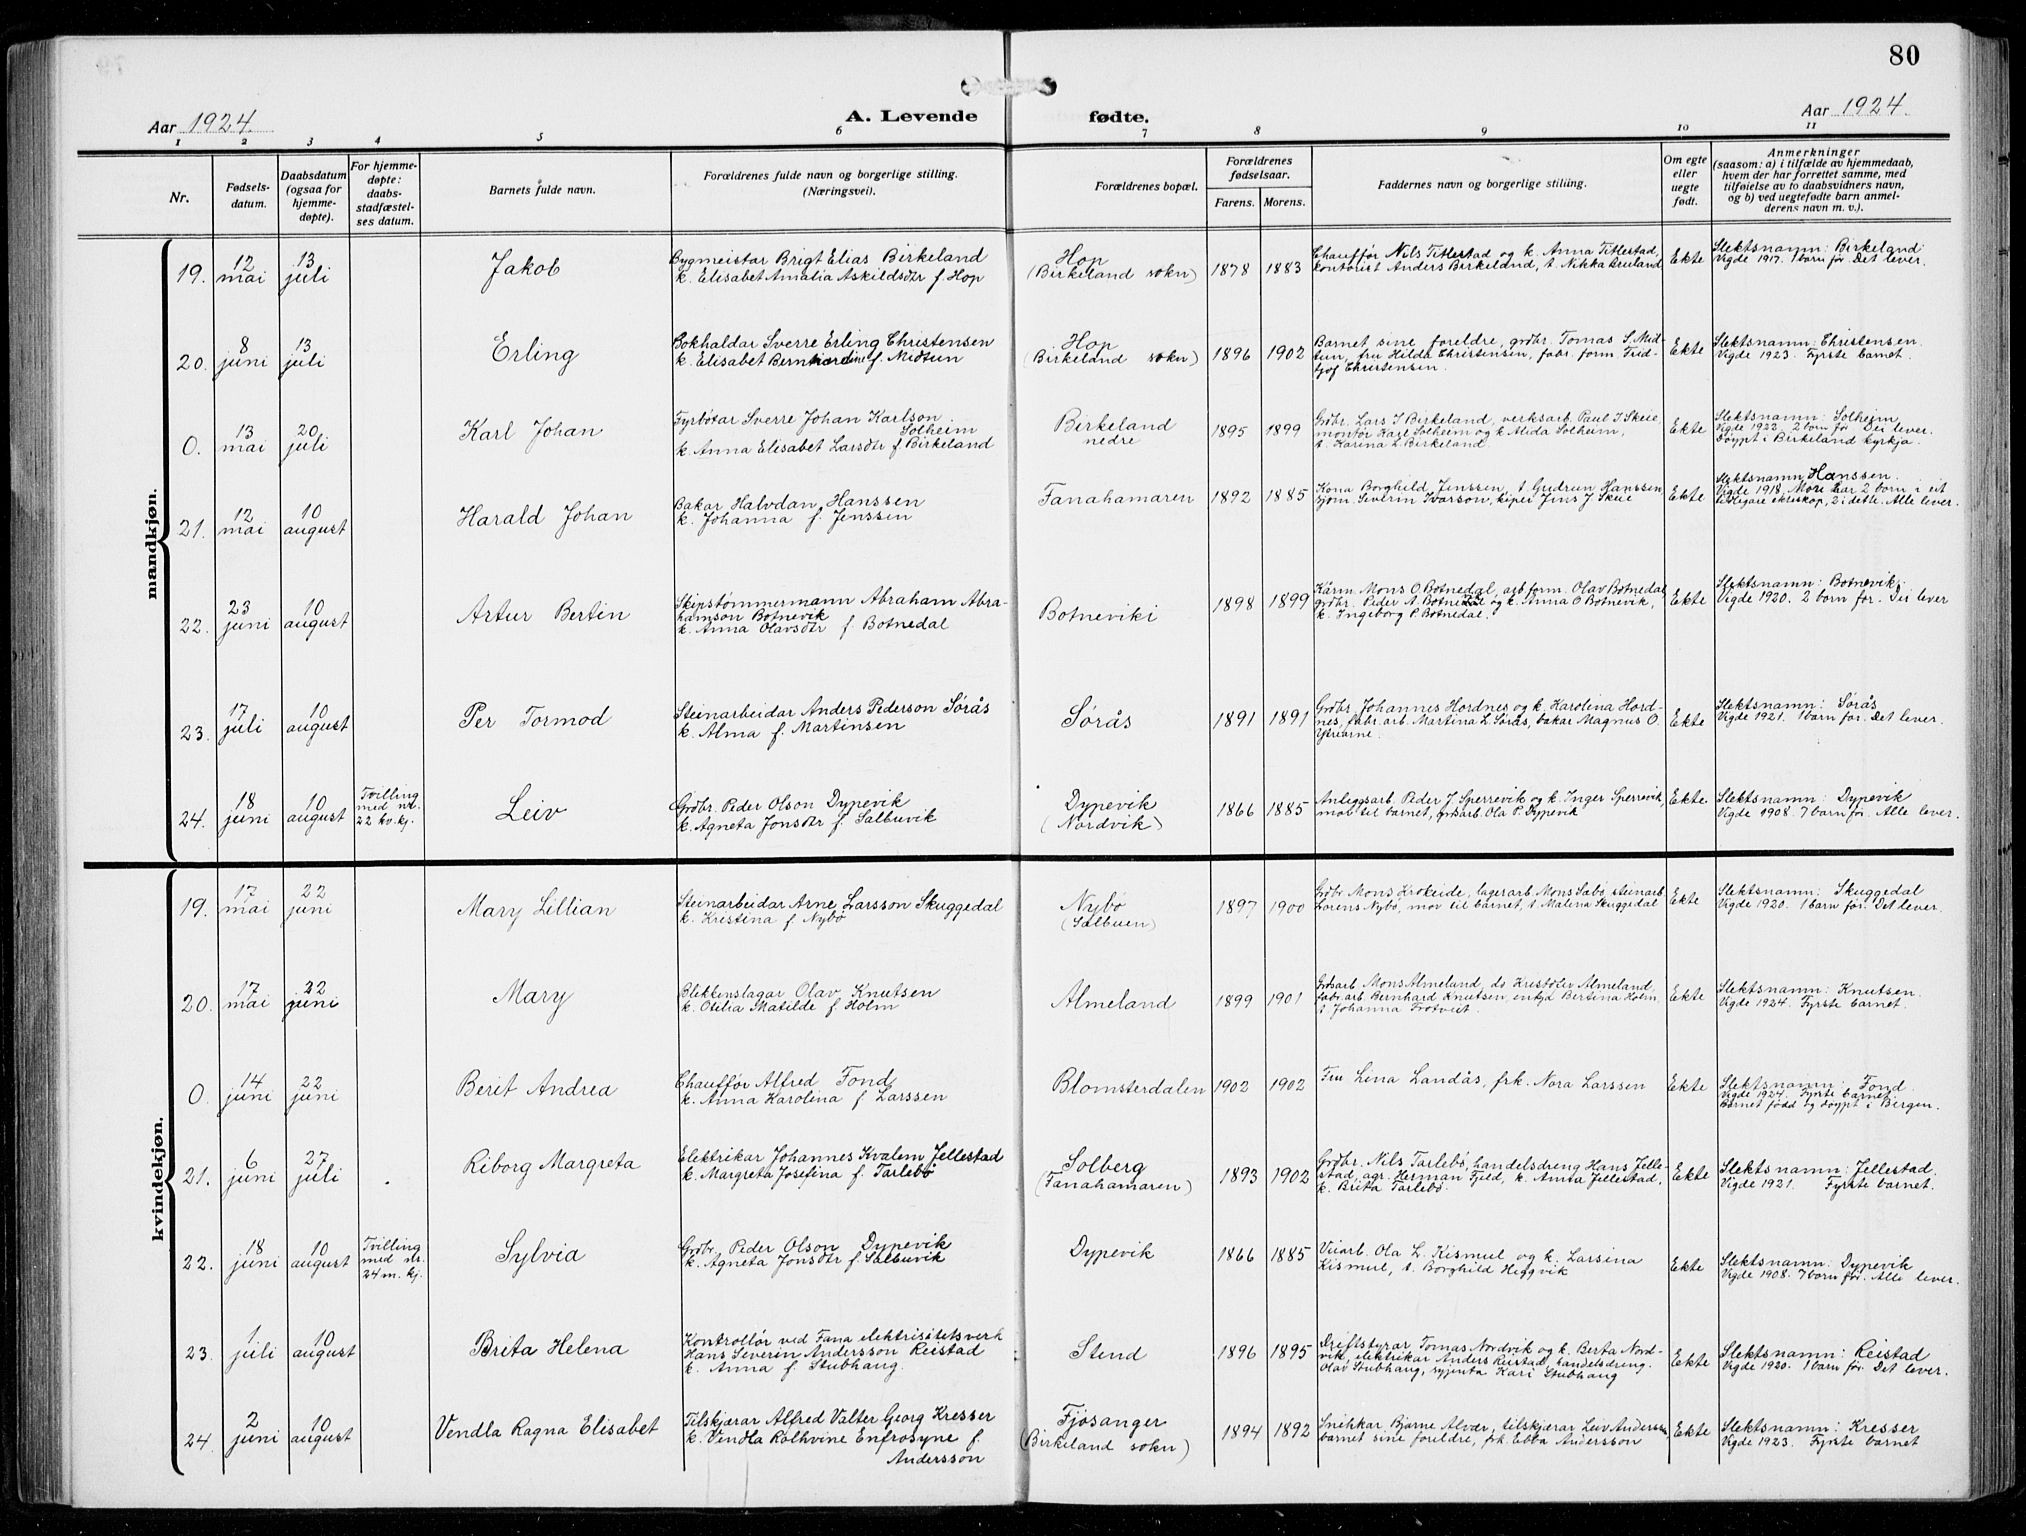 80
Aar 1924.
A. Levende fødte.
Aar 1924.
1 2 3 4 5 6 7 8 9 10 11
Nr.
Fødsels-
datum.
Daabsdatum
(ogsaa for
hjemme-
døpte).
For hjemme-
døpte:
daabs-
stadfæstel-
ses datum.
Barnets fulde navn.
Forældrenes fulde navn og borgerlige stilling.
(Næringsvei).
Forældrenes bopæl.
Forældrenes
fødselsaar.
Farens. Morens.
Faddernes navn og borgerlige stilling.
Om egte
eller
uegte
født.
Anmerkninger
(saasom: a) i tilfælde av hjemmedaab,
hvem der har forrettet samme, med
tilføielse av to daabsvidners navn,
og b) ved uegtefødte barn anmel-
derens navn m. v.).
mandkjøn.
19.
12
mai
13
juli
Jakob
Bygmeistar Brigt Elias Birkeland
k. Elisabet Amalia Askildsdtr f. Hop
Hop
(Birkeland sokn)
1878 1883
Chauffør Nils Titlestad og k. Anna Titlestad,
kontorist Anders Birkeland, t. Nikka
Ekte
Slektsnamn: Birkeland
Vigde 1917. 1 born før. Det lever.
20.
8
juni
13
juli
Erling
Bokhaldar Sverre Erling Christensen
k. Elisabet Bernhardine f. Midtun
Hop
(Birkeland sokn)
1896 1902
Barnet sine foreldre, grdbr. Tomas S. Mid-
tun, fru Hilda Christensen, fadr. form Frid-
tjof Christensen.
Ekte
Slektsnamn: Christensen.
Vigde 1923. Fyrste barnet.
0.
13
mai
20
juli
Karl Johan
Fyrbøtar Sverre Johan Karlson
Solheim
k. Anna Elisabet Larsdtr f. Birkeland
Birkeland
nedre
1895 1899
Grdbr. Lars J Birkeland, verksarb. Paul J Skeie
montør Karl Solheim og k. Alida Solheim,
t. Karina L Birkeland
Ekte
Slektsnamn: Solheim
Vigde 1922. 2 born før Dei lever.
Døypt i Birkeland kyrkja.
21.
12
mai
10
august
Harald Johan
Bakar Halvdan Hanssen
k. Johanna f. Jenssen
Fanahamaren
1892 1885
Kona Borghild Jenssen, t. Gudrun Hanssen,
sjøm. Severin Ivarson, kiper Jens J Skeie
Ekte
Slektsnamn Hanssen.
Vigde 1918. Mori har 2 born i eit
tidlegare ekteskap, 2 i dette. Alle lever.
22.
23
juni
10
august
Artur Bertin
Skipstømmermann Abraham Abra-
hamson Botnevik
k. Anna Olavsdtr f. Botnedal
Botneviki
1898 1899
Kårm. Mons O Botnedal, arb.form. Olav Botnedal
grdbr. Peder A. Botnedal og k. Anna O Botnevik,
k. Ingeborg P. Botnedal.
Ekte
Slektsnamn: Botnevik.
Vigde 1920. 2 born før. Dei lever
23.
17
juli
10
august
Per Tormod
Steinarbeidar Anders Pederson Sørås
k. Alma f. Martinsen
Sørås
1891 1891
Grdbr. Johannes Hordnes og k. Karolina Hord-
nes, fabr.arb. Martina L Sørås, bakar Magnus O.
Ytrearne.
Ekte
Slektsnamn: Sørås
Vigde 1921. 1 born før. Det lever.
24.
18
juni
10
august
Tvilling
med nr.
22 kv. kj.
Leiv
Grdbr. Peder Olson Dypevik
k. Agneta Jonsdtr f. Salbuvik
Dypevik
(Nordvik)
1866 1885
Anleggsarb. Peder J. Sperrevik og k. Inger Sperrevik,
mor til barnet, grdarb. Ola P. Dypevik
Ekte.
Slektsnamn: Dypevik
Vigde 1908. 7 born før. Alle lever.
kvindekjøn.
19.
17
mai
22
juni
Mary Lillian
Steinarbeidar Arne Larsson Skuggedal
k. Kristina f. Nybø
Nybø
(Salbuen)
1897 1900
Grdbr Mons Krokeide, lagerarb. Mons Sæbø, steinarb
Lorens Nybø, mor til barnet, t. Malena Skuggedal
Ekte
Slektsnamn: Skuggedal
Vigde 1920. 1 born før. Det lever.
20.
17
mai
22
juni
Mary
Blikkenslagar Olav Knutsen
k. Otilia Matilde f. Holm
Almeland
1899 1901
Grdarb. Mons Almeland, do Kristofer Almeland,
fabr.arb. Bernhard Knutsen, Bertina Holm,
t. Johanna Trotveit.
Ekte
Slektsnamn: Knutsen.
Vigde 1924. Fyrste barnet.
0.
14
juni
22
juni
Berit Andrea
Chauffør Alfred Fond
k. Anna Karolina f Larssen
Blomsterdalen
1902 1902
Fru Lina Landås, frk. Nora Larssen
Ekte
Slektsnamn: Fond.
Vigde 1924. Fyrste barnet.
Barnet født og døypt i Bergen.
21.
6
juni
27
juli
Riborg Margreta
Elektrikar Johannes Kvalem Jellestad
k. Margreta Josefina f. Tarlebø
Solberg
(Fanahamaren)
1893 1902
Grdbr. Nils Tarlebø, handelsdreng Hans Jelle-
stad, agr. Herman Fjeld, k. Anna Jellestad,
k. Brita Tarlebø.
Ekte
Slektsnamn: Jellestad.
Vigde 1921. Fyrste barnet.
22.
18
juni
10
august
Tvilling
med nr.
24 m. kj.
Sylvia
Grdbr. Peder Olson Dypevik
k. Agneta Jonsdtr f. Salbuvik
Dypevik
1866 1885
Veiarb. Ola L. Kismul og k. Larsina
Kismul, t. Borghild Heggvik
Ekte
Slektsnamn: Dypevik
Vigde 1908. 7 born før. Alle lever.
23.
1
juli
10
august
Brita Helena
Kontrollør ved Fana elektrisitetsverk
Hans Severin Andersson Reistad
k. Anna f. Stubhaug.
Stend
1896 1895
Driftstyrar Tomas Nordvik og k. Berta Nord-
vik, elektrikar Anders Reistad, handelsdreng.
Olav Stubhaug, syjenta Kari Stubhaug
Ekte
Slektsnamn: Reistad
Vigde 1920. 1 born før. Det lever.
24.
2
juni
10
august
Vendla Ragna Elisabet
Tilskjærar Alfred Valter Georg Kresser
k. Vendla Rolhvine Enfrosyne f.
Andersson
Fjøsanger
(Birkeland sokn)
1894 1892
Snikkar Bjarne Alvær, tilskjærar Leiv Anderssen
barnet sine foreldre, frk. Ebba Andersson
Ekte
Slektsnamn: Kresser
Vigde 1923. Fyrste barnet